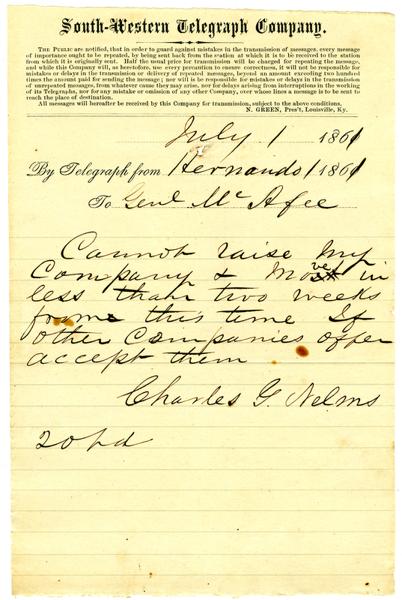 South-Western Telegraph Company.
THE PUBLIC are notified, that in order to guard against mistakes in the transmission of messages, every message
of importance ought to be repeated, by being sent back from the station at which it is to be received to the station
from which it is originally sent. Half the usual price for transmission will be charged for repeating the message,
and while this Company will, as heretofore, use every precaution to ensure correctness, it will not be responsible for
mistakes or delays in the transmission or delivery of repeated messages, beyond an amount exceeding two hundred
times the amount paid for sending the message; nor will it be responsible for mistakes or delays in the transmission
of unrepeated messages, from whatever cause they may arise, nor for delays arising from interruptions in the working
of its Telegraphs, nor for any mistake or omission of any other Company, over whose lines a message is to be sent to
reach the place of destination.
All messages will hereafter be received by this Company for transmission, subject to the above conditions.
N. GREEN, Pres't, Louisville, Ky.
July 1 1861
By Telegraph from Hernando 1 1861
To Genl McAfee
Cannot raise my
Company & Move in
less than two weeks
from this time If
other Companies offer
accept them
Charles G. Nelms
20 pd